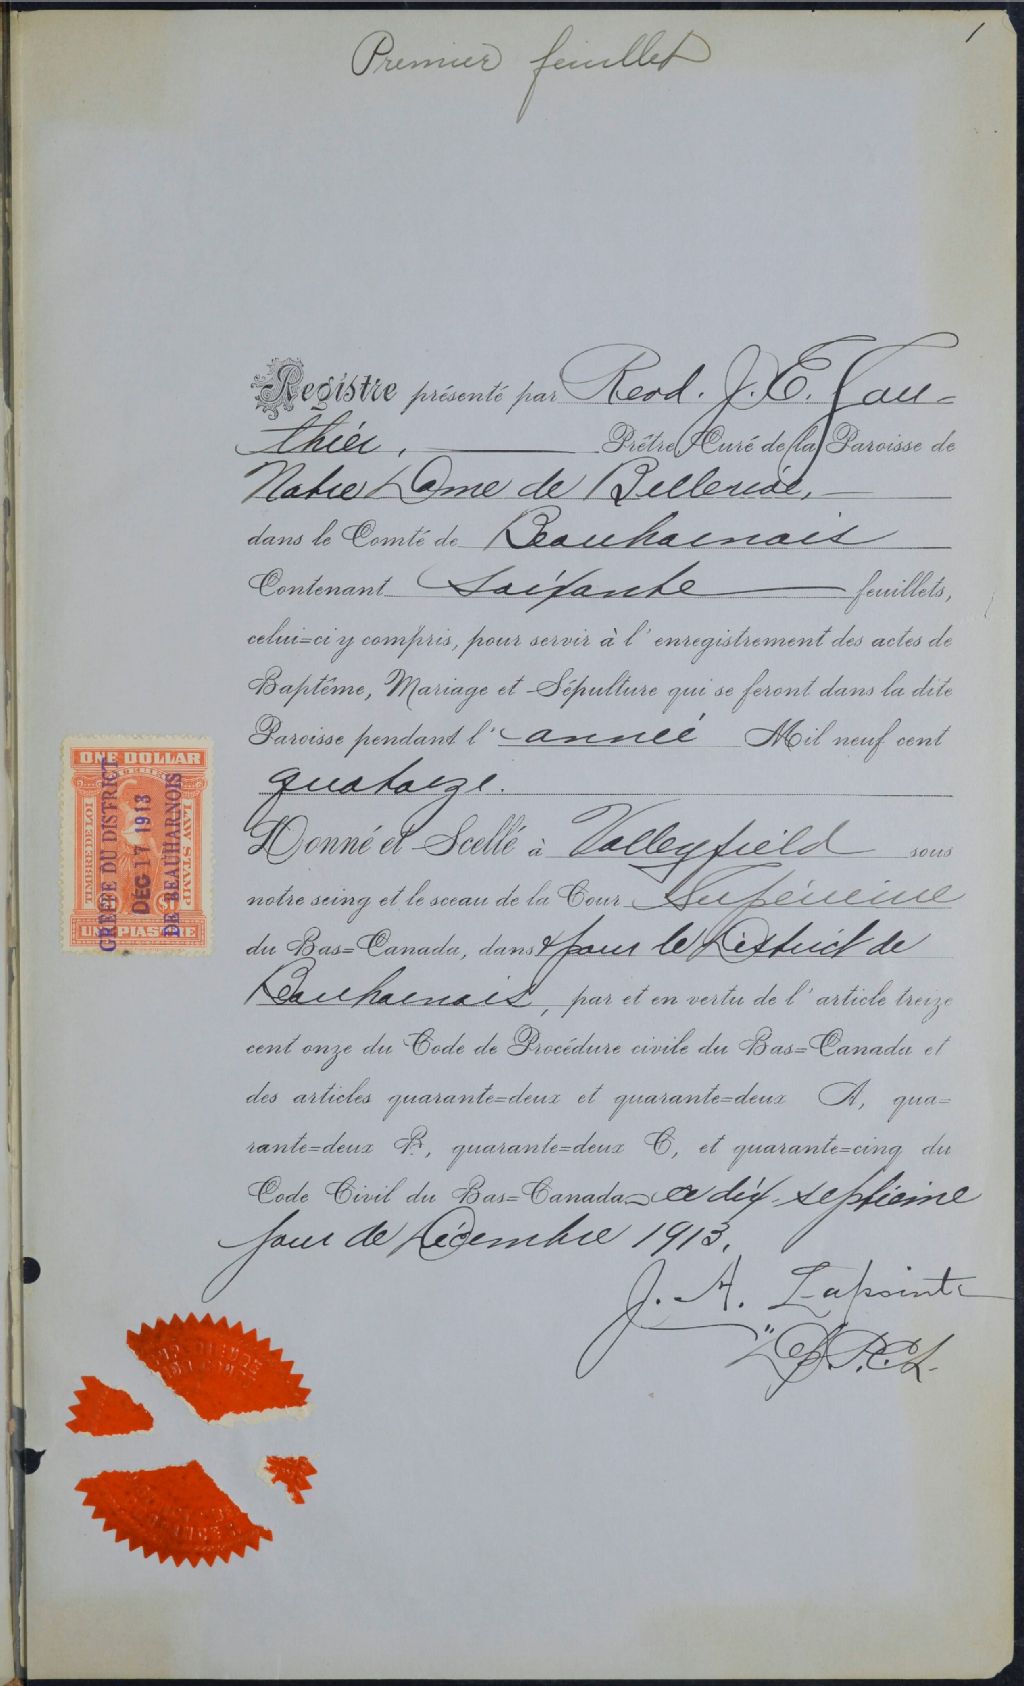 1
Premier feuillet
Registre présenté par Revd. J. E. Gau=
thier, Prêtre, Curé de la Paroisse de
Notre Dame de Bellerive,
dans le Comté de Beauharnois
Contenant Soixante feuillets,
celui=ci y compris, pour servir à l'enregistrement des actes de
Baptême, Mariage et Sépulture qui se feront dans la dite
Paroisse pendant l'année Mil neuf cent
quatorze.
Donné et Scellé à Valleyfield sous
notre seing et le sceau de la Cour Supérieure
du Bas=Canada, dans & pour le District de
Beauharnois, par et en vertu de l'article treize
cent onze du Code de Procédure civile du Bas=Canada et
des articles quarante=deux et quarante=deux A, qua=
rante=deux B, quarante=deux C, et quarante=cinq du
Code Civil du Bas=Canada ce dix-septième
jour de Décembre 1913.
J. A. Lapointe
Dep. P.C.S.
ONE DOLLAR
TIMBRE DE LOI
LAW STAMP
UNE PIASTRE
GREFFE DU DISTRICT
DEC 17 1913
DE BEAUHARNOIS